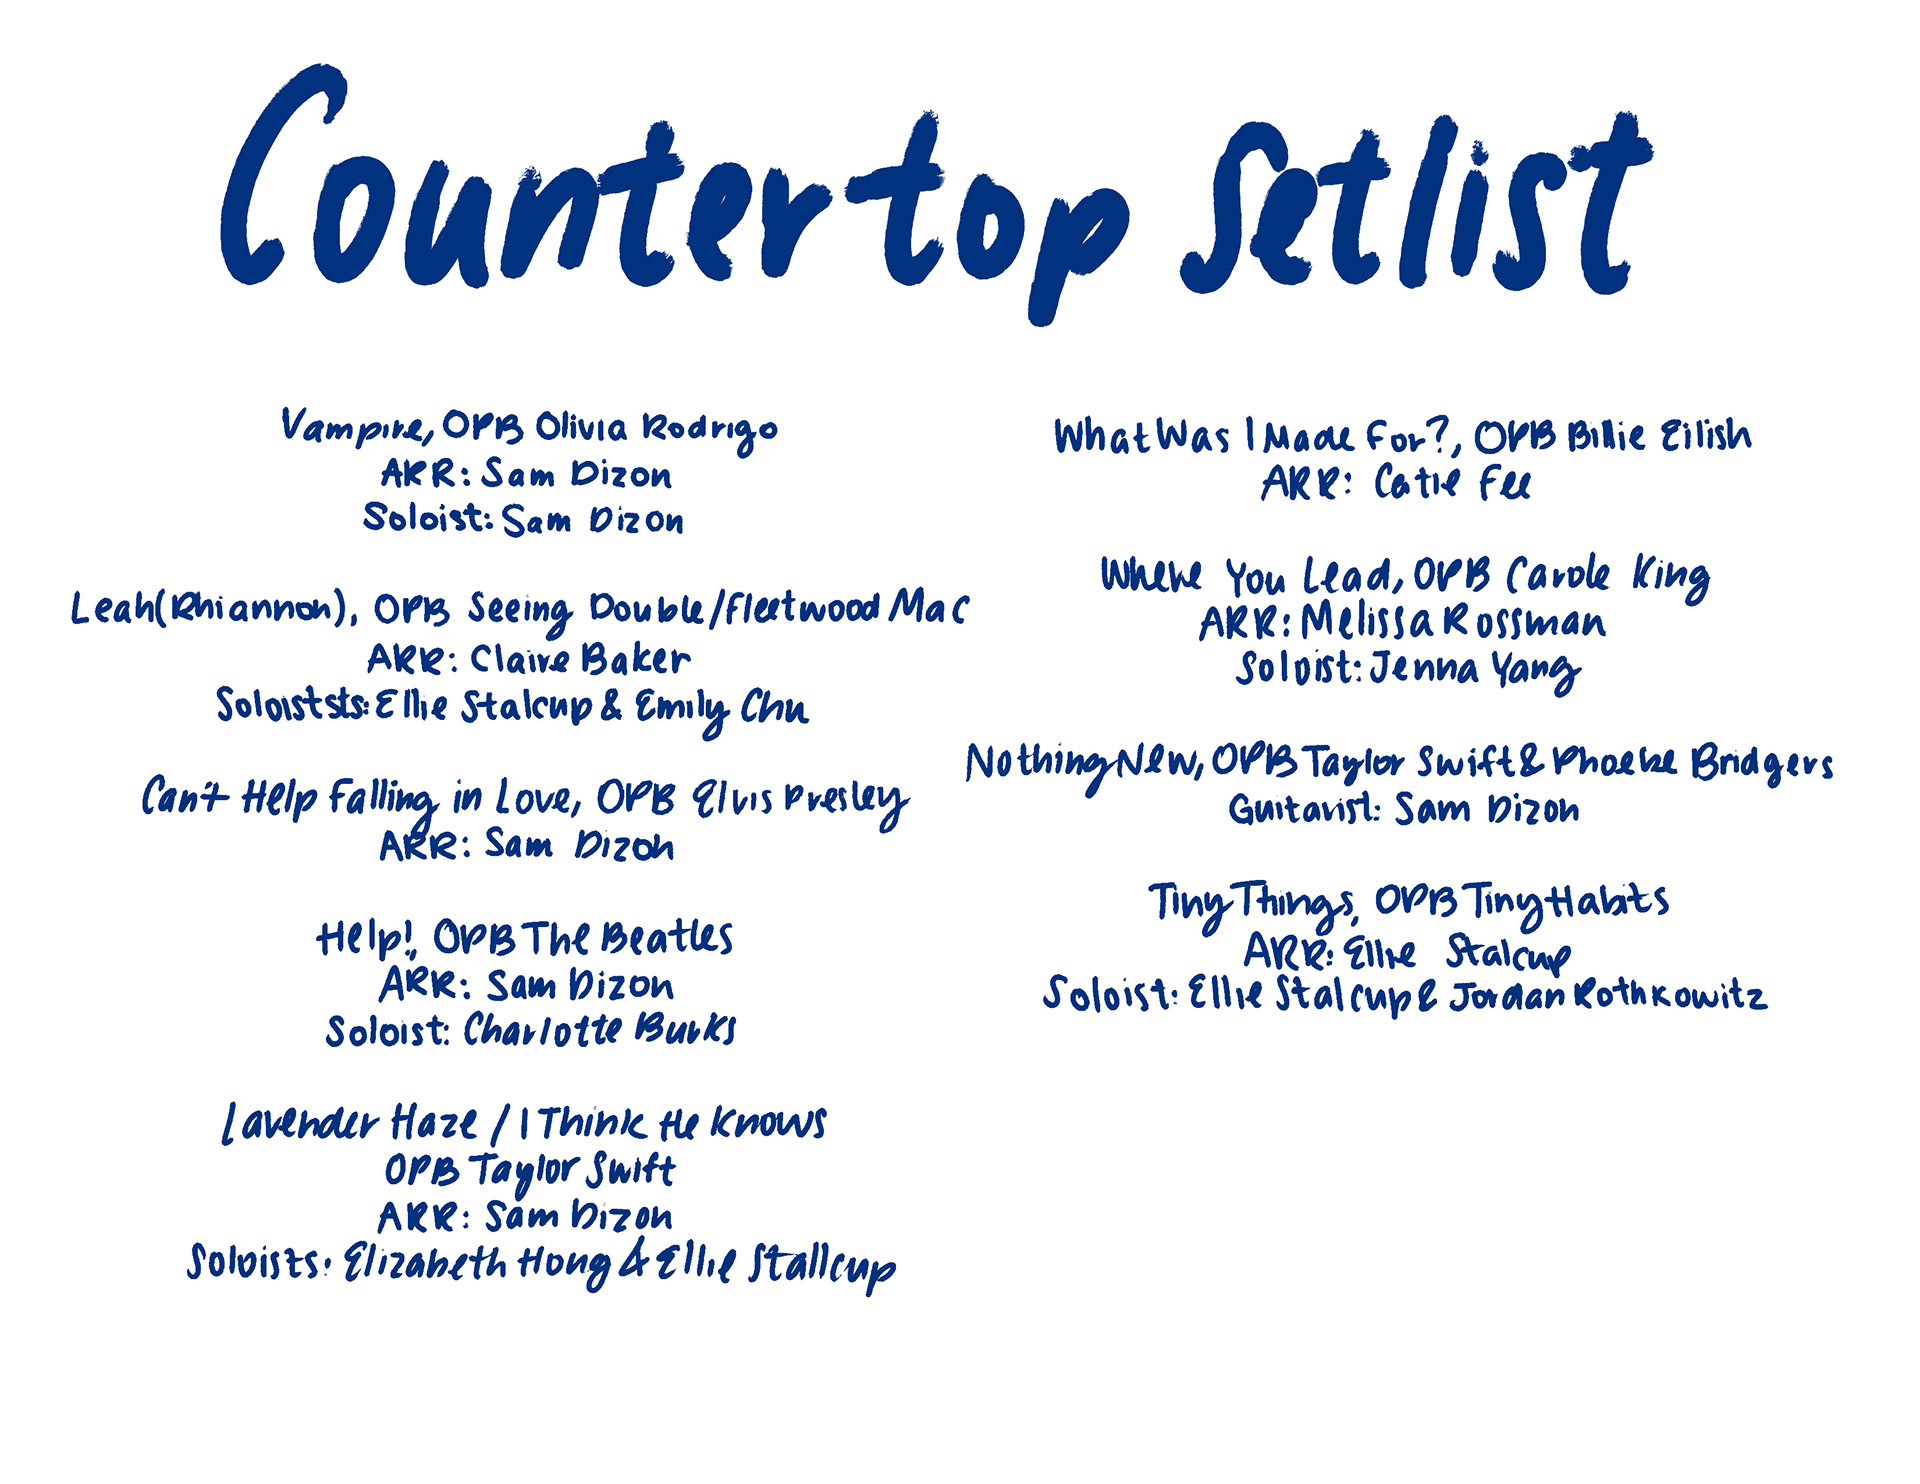 Countertop Setlist
Vampire, OPB Olivia Rodrigo
ARR: Sam Dizon
Soloist: Sam Dizon
Leah(Rhiannon), OPB Seeing Double/Fleetwood Mac
ARR: Claire Baker
Soloiststs: Ellie Stalcup & Emily Chu
Can't Help Falling in Love, OPB Elvis Presley
ARR: Sam Dizon
Help!, OPB The Beatles
ARR: Sam Dizon
Soloist: Charlotte Burks
Lavender Haze / I Think He Knows
OPB Taylor Swift
ARR: Sam Dizon
Soloists: Elizabeth Hong & Ellie Stallcup
What Was I Made For?, OPB Billie Eilish
ARR: Catie Fee
Where You Lead, OPB Carole King
ARR: Melissa Rossman
Soloist: Jenna Yang
Nothing New, OPB Taylor Swift & Phoebe Bridgers
Guitarist: Sam Dizon
Tiny Things, OPB Tiny Habits
ARR: Ellie Stalcup
Soloist: Ellie Stalcup & Jordan Rothkowitz